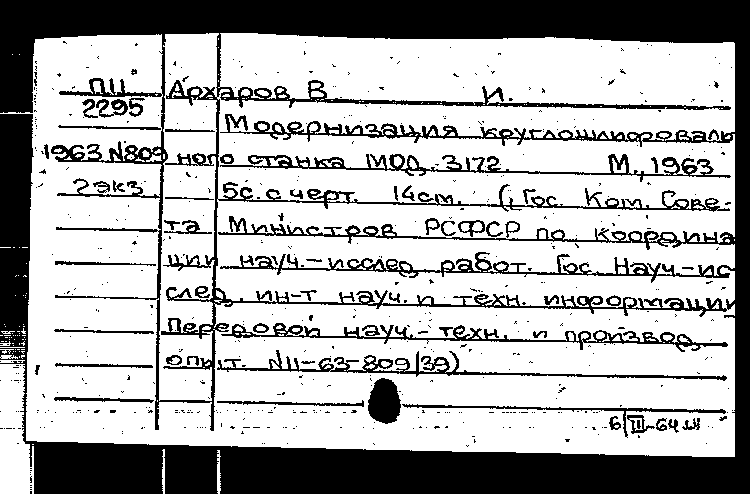 П11 Архаров, В И.
2295
Модернизация круглошлифоваль
1963 N809 ного станка МОД. 3172. М., 1963
2 экз 5с. с черт. 14см. (Гос. Ком. Сове-
та Министров РСФСР по координа
ции науч.-исслед. работ. Гос. Науч.-ис-
след. ин-т науч. и техн. информации
Передовой науч.-техн. и производ.
опыт. N11-63-809/39).
6/III-64